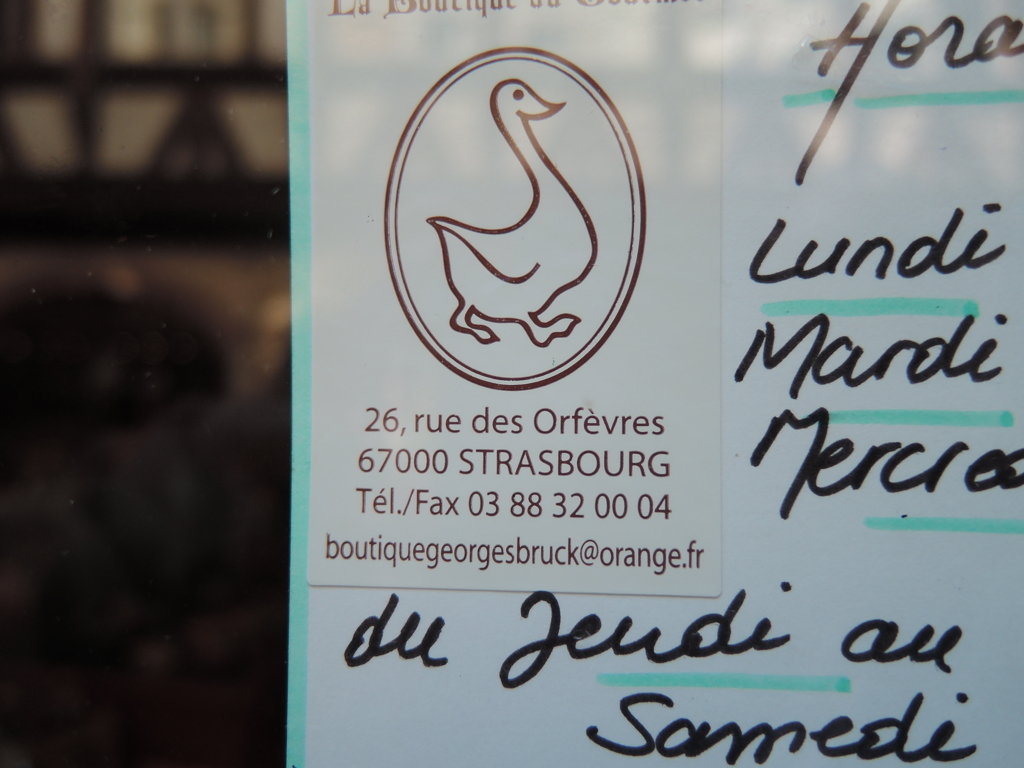 La Boutique du Gourmet
26, rue des Orfèvres
67000 STRASBOURG
Tél./Fax 03 88 32 00 04
boutiquegeorgesbruck@orange.fr
Hora
Lundi
Mardi
Mercred
du Jeudi au
Samedi